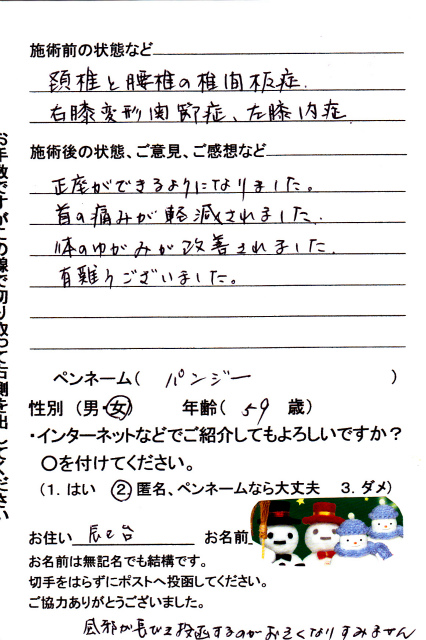 施術前の状態など
頚椎と腰椎の椎間板症.
右膝変形関節症、左膝内症
施術後の状態、ご意見、ご感想など
正座ができるようになりました。
首の痛みが軽減されました.
体のゆがみが改善されました.
有難うございました。
ペンネーム( パンジー )
性別 (男・女) 年齢( 59 歳)
・インターネットなどでご紹介してもよろしいですか?
〇を付けてください。
(1. はい ② 匿名、ペンネームなら大丈夫 3. ダメ)
お住い 辰巳台 お名前
お名前は無記名でも結構です。
切手をはらずにポストへ投函してください。
ご協力ありがとうございました。
風邪が長びき投函するのがおそくなりすみません
お手数ですがこの線で切り取って右側を出してください